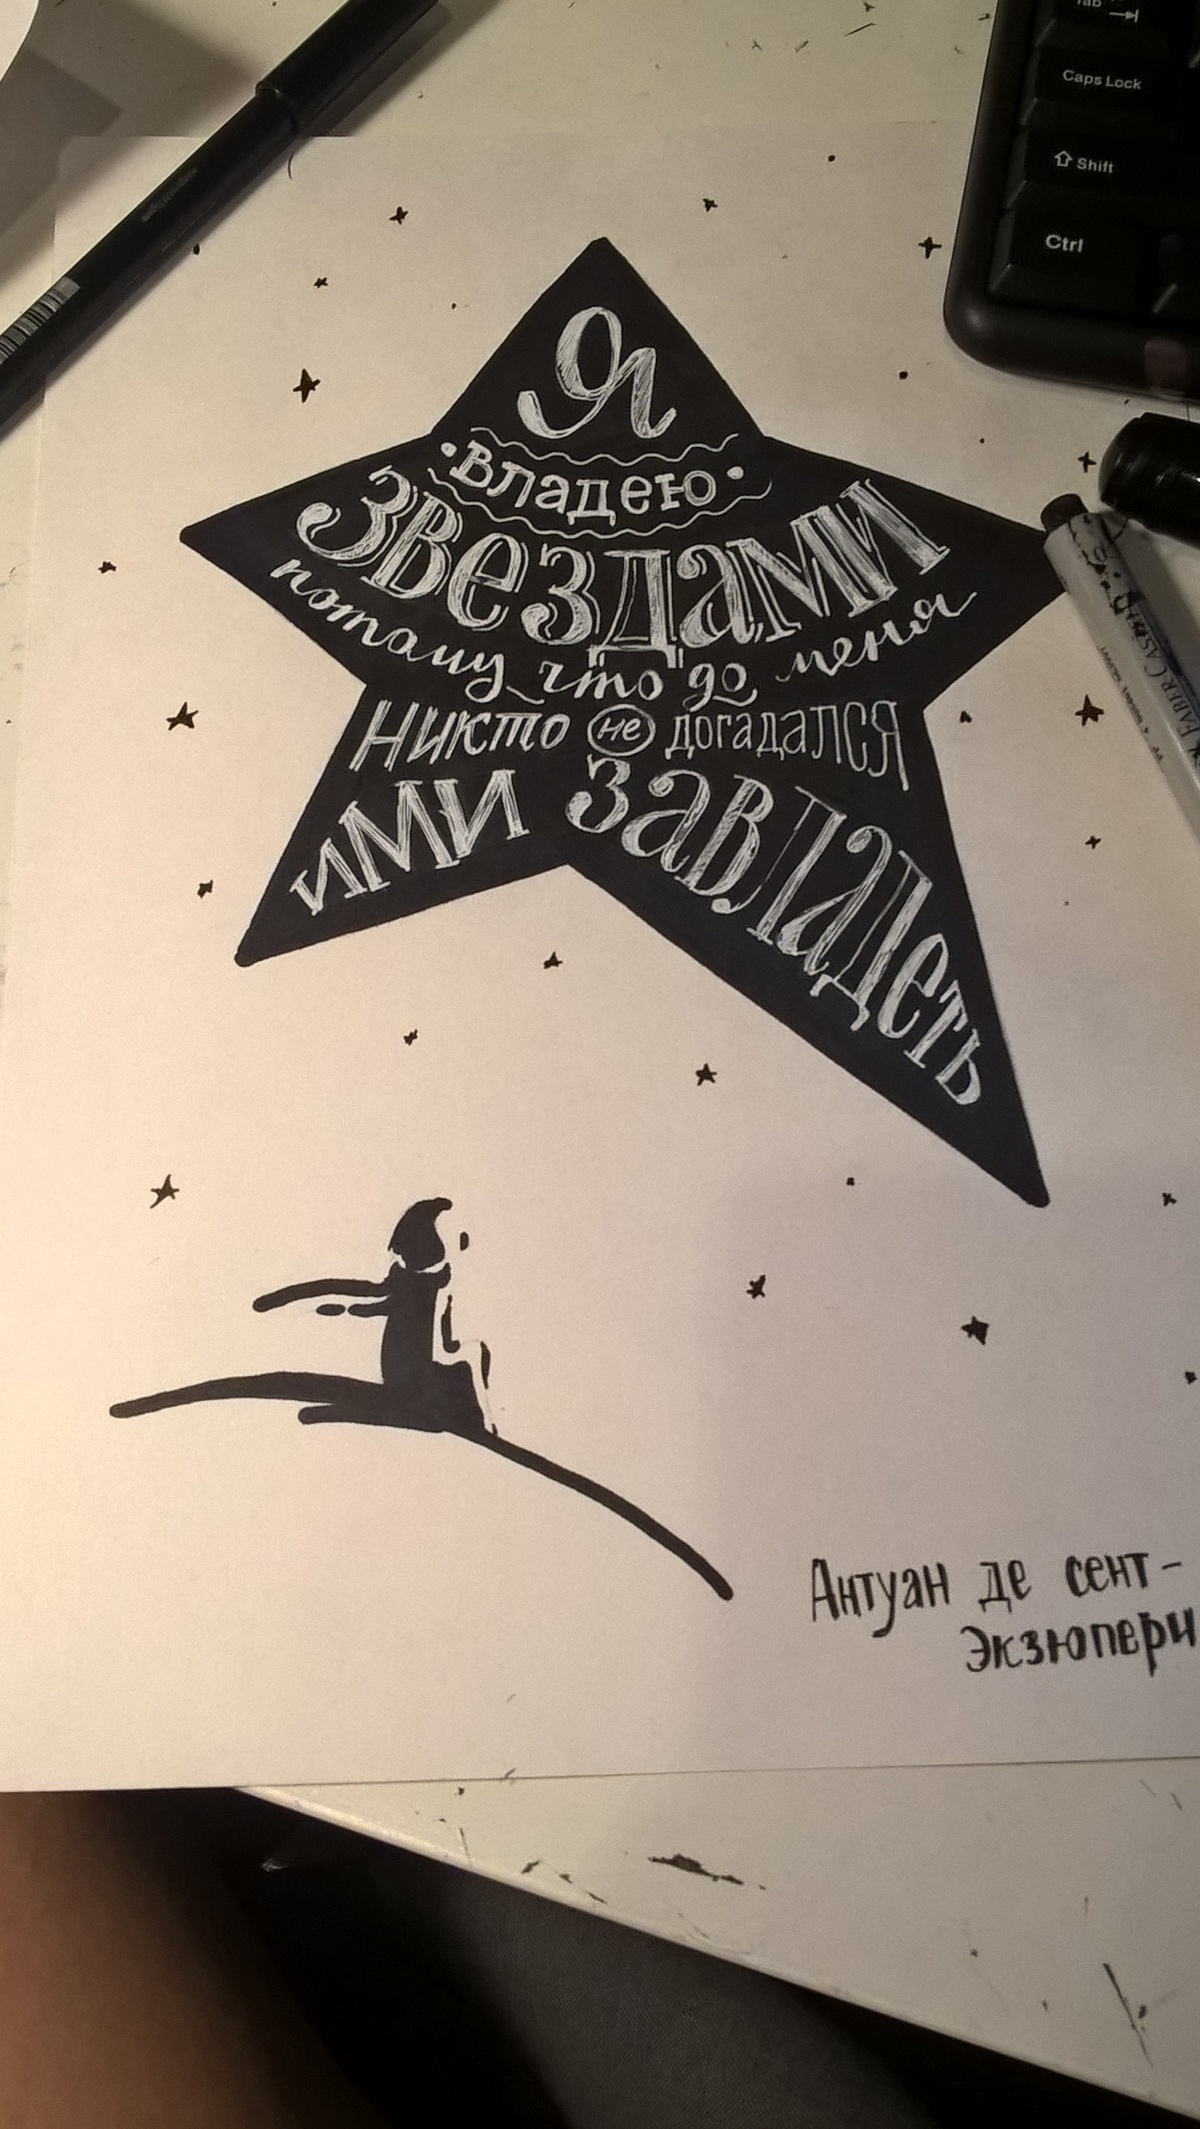 Tab
Caps Lock
Shift
Ctrl
Я
владею
звездами
потому что до меня
никто не догадался
ими завладеть
Антуан де сент-
Экзюпери